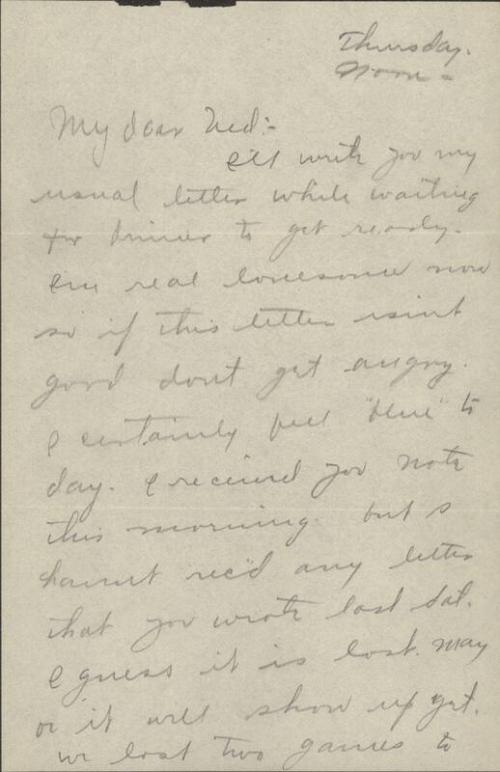 Thursday.
Noon -
My dear Ned:-
I'll write you my
usual letter while waiting
for dinner to get ready.
Im real lonesome now
so if this letter isint
good dont get angry.
I certainly feel "blue" to
day. I received you note
this morning. but I
havint rec'd any letter
that you wrote last Sat.
I guess it is lost. May
or it will show up yet.
We lost two games to